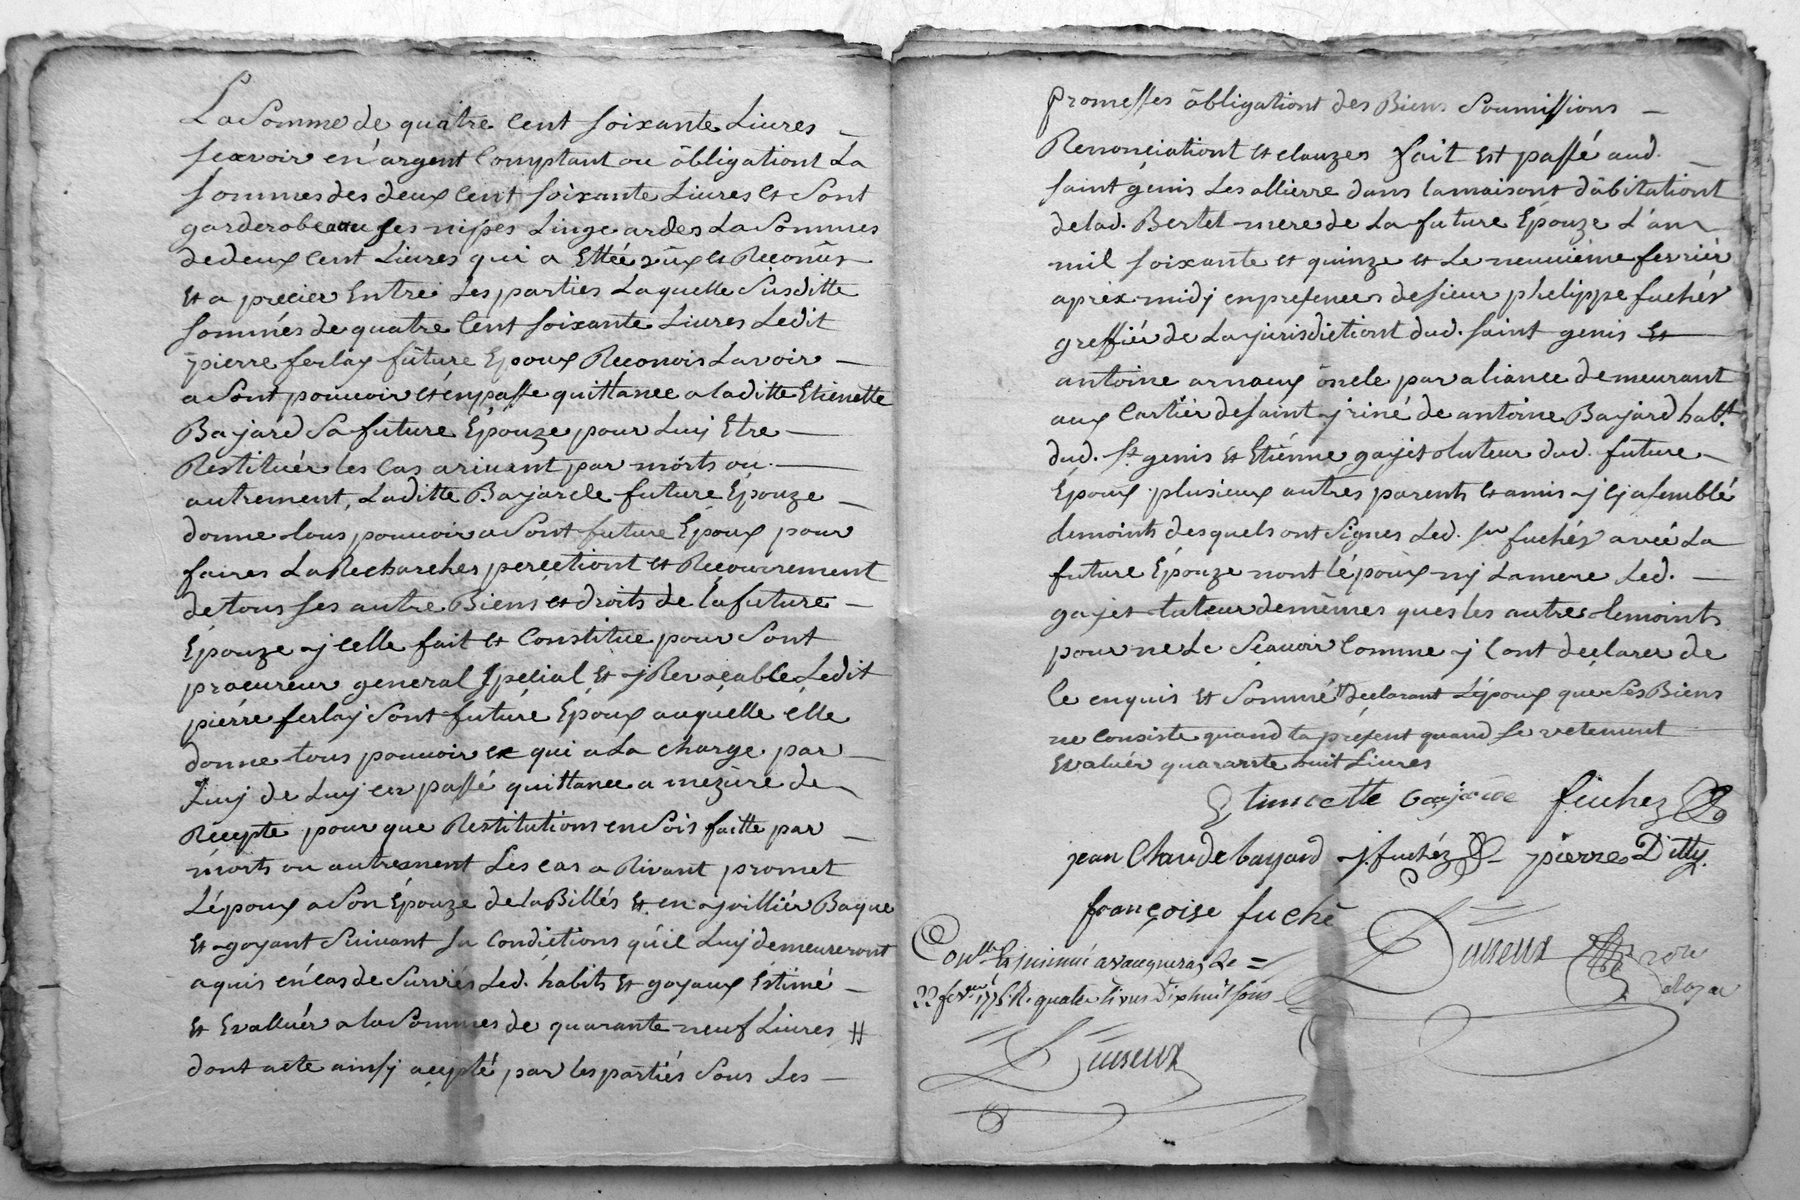 La Somme de quatre Cent Soixante Livres —
scavoir en argent Comptant ou obligationt La
sommes des deux Cent soixante Livres et Sont
garderobe ses nipes Linge ardes La Sommes
de deux Cent Livres qui a Ettée vûx et Reconûs
Et a precier Entre Les parties Laquelle Susditte
sommes de quatre Cent soixante Livres Ledit
pierre ferlay fûture Epoux Reconois Lavoir —
a Sont pouvoir et en passe quittance a laditte Etienette
Bajard Sa future Epouze pour Luy Etre —
Restituér les Cas arivant par morts ou —
autrement, Laditte Bayarde future Epouze —
donne tous pouvoir a Sont future Epoux pour
faires La Recharches percetiont et Recouvrement
de tous ses autre Biens et droits de la future —
Epouze jcelle fait et Constitue pour Sont
procureur general Special Et jRevocable Ledit
piérre ferlaj Sont future Epoux auquelle elle
donne tous pouvoir et qui a La charge par —
Luij de Luij en passé quittance a mezùre de
Récepte pour que Restitutions en Sois faitte par —
morts ou autrement Les cas a Rivant promet
L'époux a Son Epouze de la Billés Et en joilliér Bague
Et joyant Suivant Sa Condictions qu'il Luij demeureront
aquis en cas de Surviés Led. habits Et joyaux Estimé —
Et Evalluér a la Sommes de quarante neuf Livres #
dont acte ainsy acepté par les partiés Sous Les —
promesses obligationt des Biens Soumissions —
Renonciationt et clauzes fait Est passé aud.
saint génis Les ollierre dans la maisont d'abitationt
de lad. Bertet mere de La future Epouze L'an
mil soixante et quinze et Le neuviéme ferriér
aprèx midj en presences de sieur phelippe fuchéz
greffiér de La jurisdictiont dud. saint genis Et
antoine arnaux oncle par aliance demeurant
aux Cartiér de saint jriné de antoine Bajard habt.
dud. St. genis Et Etiénne gayet tuteur dud. future
Epoux plusieux autres parents et amis jcj asemblé
temoints desquels ont Signes Led. sr fuchéz avec La
future Epouze nont l'époux nj La mere Led. —
gayet tuteur de mêmes ques les autres temoints
pour ne Le Scavoir Comme j Lont declarer de
Ce enquis et Sommé declarant L'époux que Ses Biens
ne Consiste quand ta present quand se vetement
Evaluér quarante huit Livres
Etiennette bajarde fuchez
jean Claude bayard j fuchéz pierre Ditty.
françoise fuché
Dusseux
Conlle. et jnsinué a vaugneray Le =
22 fevrier 1775 R. quatre livres Dixhuit sols
Dusseux